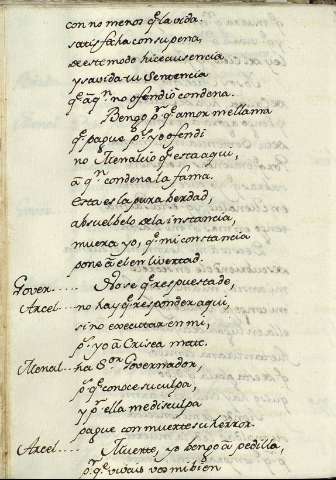 con no menos q̃ la vida.
satisfecha con su pena,
de este modo hice ausencia
y sa vida tu Sentencia
q̃ a q.n no ofendio condena.
Bengo p.r q̃ amor me llama
q̃ pague p.s yo ofendi
no Atenalcio q̃ esta aqui,
a q.n condena la fama.
Esta es la pura berdad,
absuelbelo de la instancia,
muera yo, q̃ mi constancia
pone a el en livertad.
Gover..... No se q̃ respuesta de,
Arcel..... no hay q̃ responder aqui,
sino executar en mi,
p.s yo a Crisea mate.
Atenal... ha S.or Governador,
p.s q̃ conoce su culpa,
y p.r ella me disculpa
pague con muerte su herror.
Arcel.... Muerte, yo bengo a pedilla,
p.r q̃ vivais vos mi bien